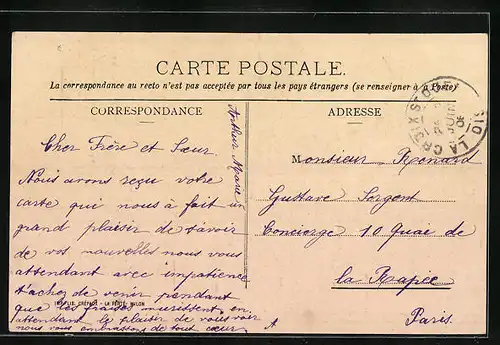 CARTE POSTALE.
La correspondance au recto n'est pas acceptée par tous les pays étrangers (se renseigner à la Poste)
CORRESPONDANCE
Cher Frère et Sœur
Nous avons reçu votre
carte qui nous à fait un
grand plaisir de savoir
de vos nouvelles nous vous
attendant avec impatience
t'achez de venir pendant
que les fraises murissent, en
attendant le plaisir de vous voir
nous vous embrassons de tout cœur
Arthur Marie
ADRESSE
Monsieur Renard
Gustave Sergent
Concierge 10 Quai de
la Rapée
Paris
LA CROIX
JUIN